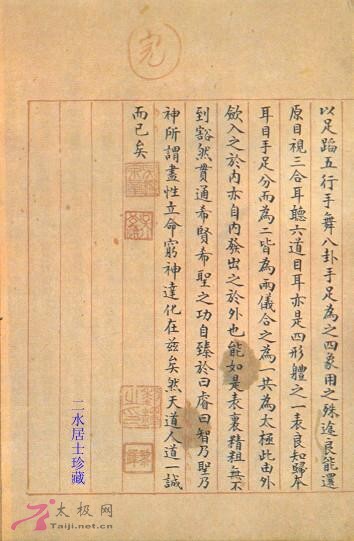 完
以足蹈五行手舞八卦手足為之四象用之殊途良能還
原目視三合耳聽六道目耳亦是四形體之一表良知歸本
耳目手足分而為二皆為兩儀合之為一共為太極此由外
斂入之於內亦自內發出之於外也能如是表裏精粗無不
到豁然貫通希賢希聖之功自臻於曰睿曰智乃聖乃
神所謂盡性立命窮神達化在茲矣然天道人道一誠
而已矣
二水居士珍藏
太极网
Taiji.net.cn